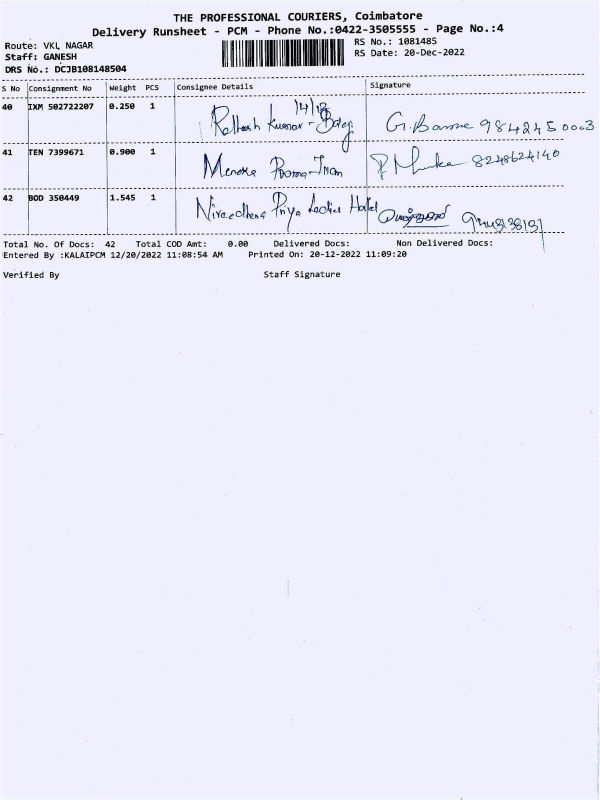 THE PROFESSIONAL COURIERS, Coimbatore
Delivery Runsheet - PCM - Phone No.:0422-3505555 - Page No.:4
Route: VKL NAGAR
RS No.: 1081485
Staff: GANESH
RS Date: 20-Dec-2022
DRS No.: DCJB108148504
S No Consignment No Weight PCS Consignee Details Signature
40 IXM 502722207 0.250 1 Kumar G. 9842450003
41 TEN 7399671 0.900 1 8248624140
42 BOD 350449 1.545 1 Priya Ladies Hostel
Total No. Of Docs: 42 Total COD Amt: 0.00 Delivered Docs: Non Delivered Docs:
Entered By :KALAIPCM 12/20/2022 11:08:54 AM Printed On: 20-12-2022 11:09:20
Verified By Staff Signature